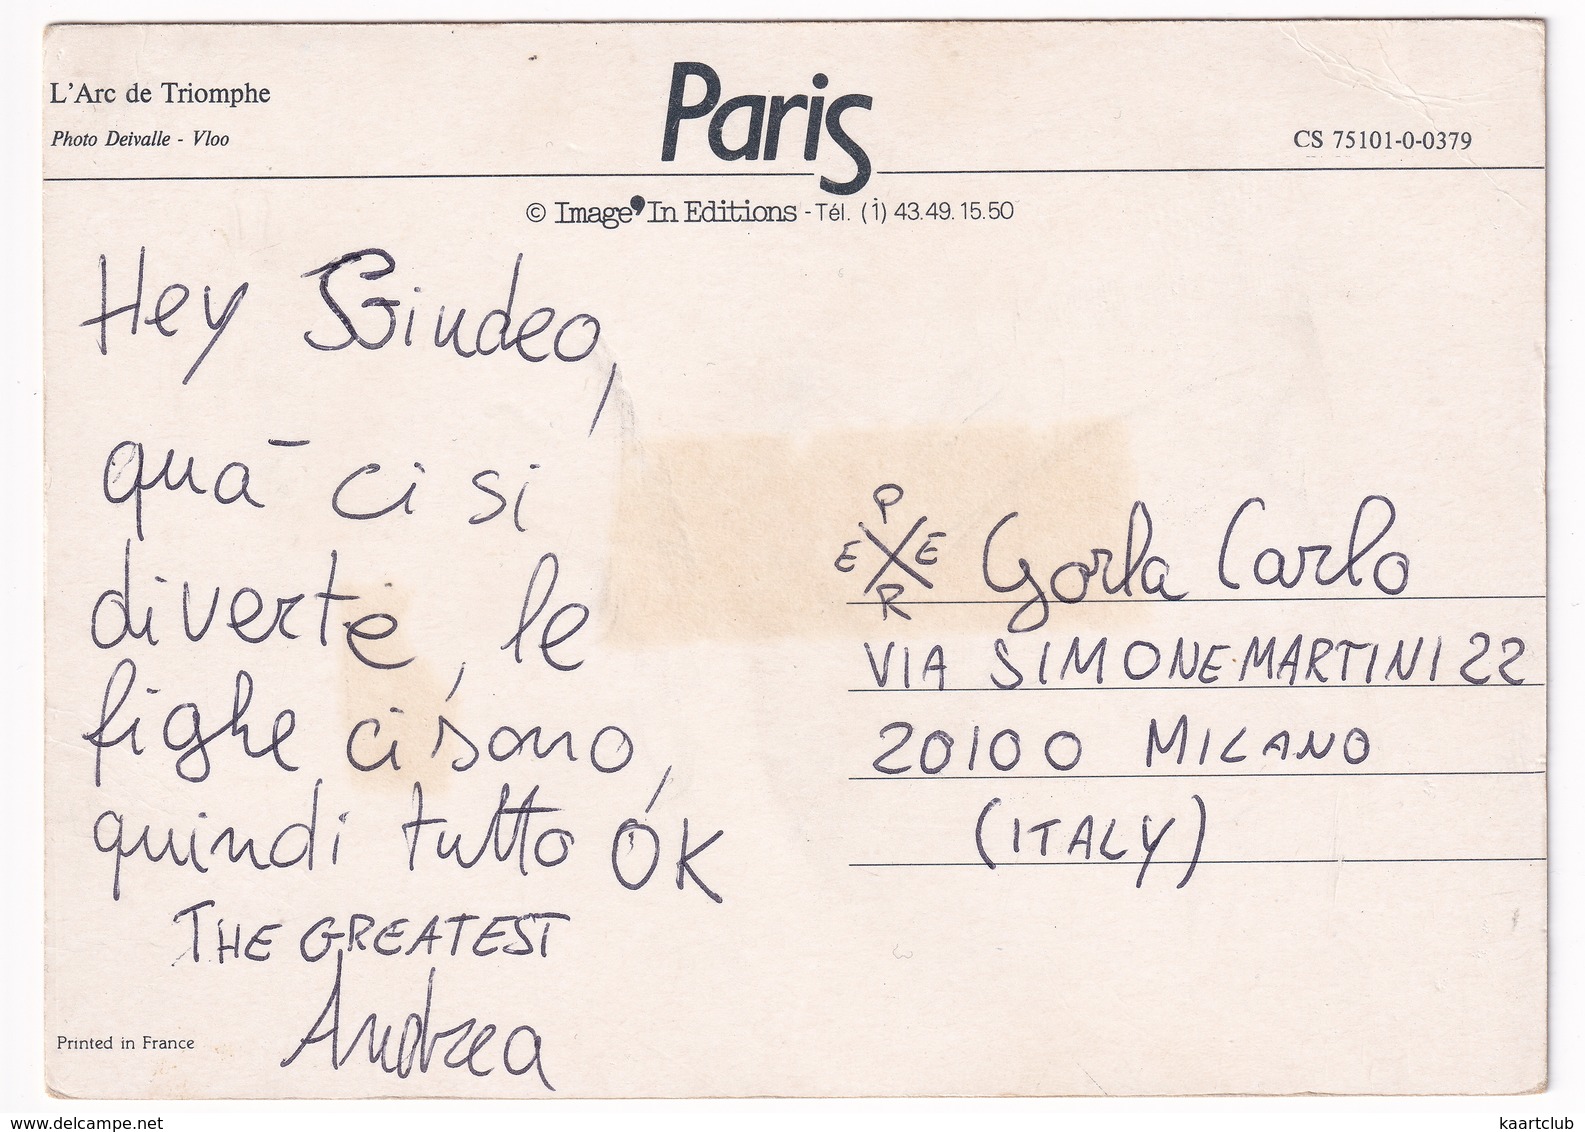 L'Arc de Triomphe
Photo Deivalle - Vloo
Paris
CS 75101-0-0379
© Image'In Editions - Tél. (1) 43.49.15.50
Hey Giudeo,
quà ci si
diverte, le
fighe ci sono,
quindi tutto OK
THE GREATEST
Andrea
P
E E
R
Gorla Carlo
VIA SIMONE MARTINI 22
20100 MILANO
(ITALY)
Printed in France
www.delcampe.net
kaartclub